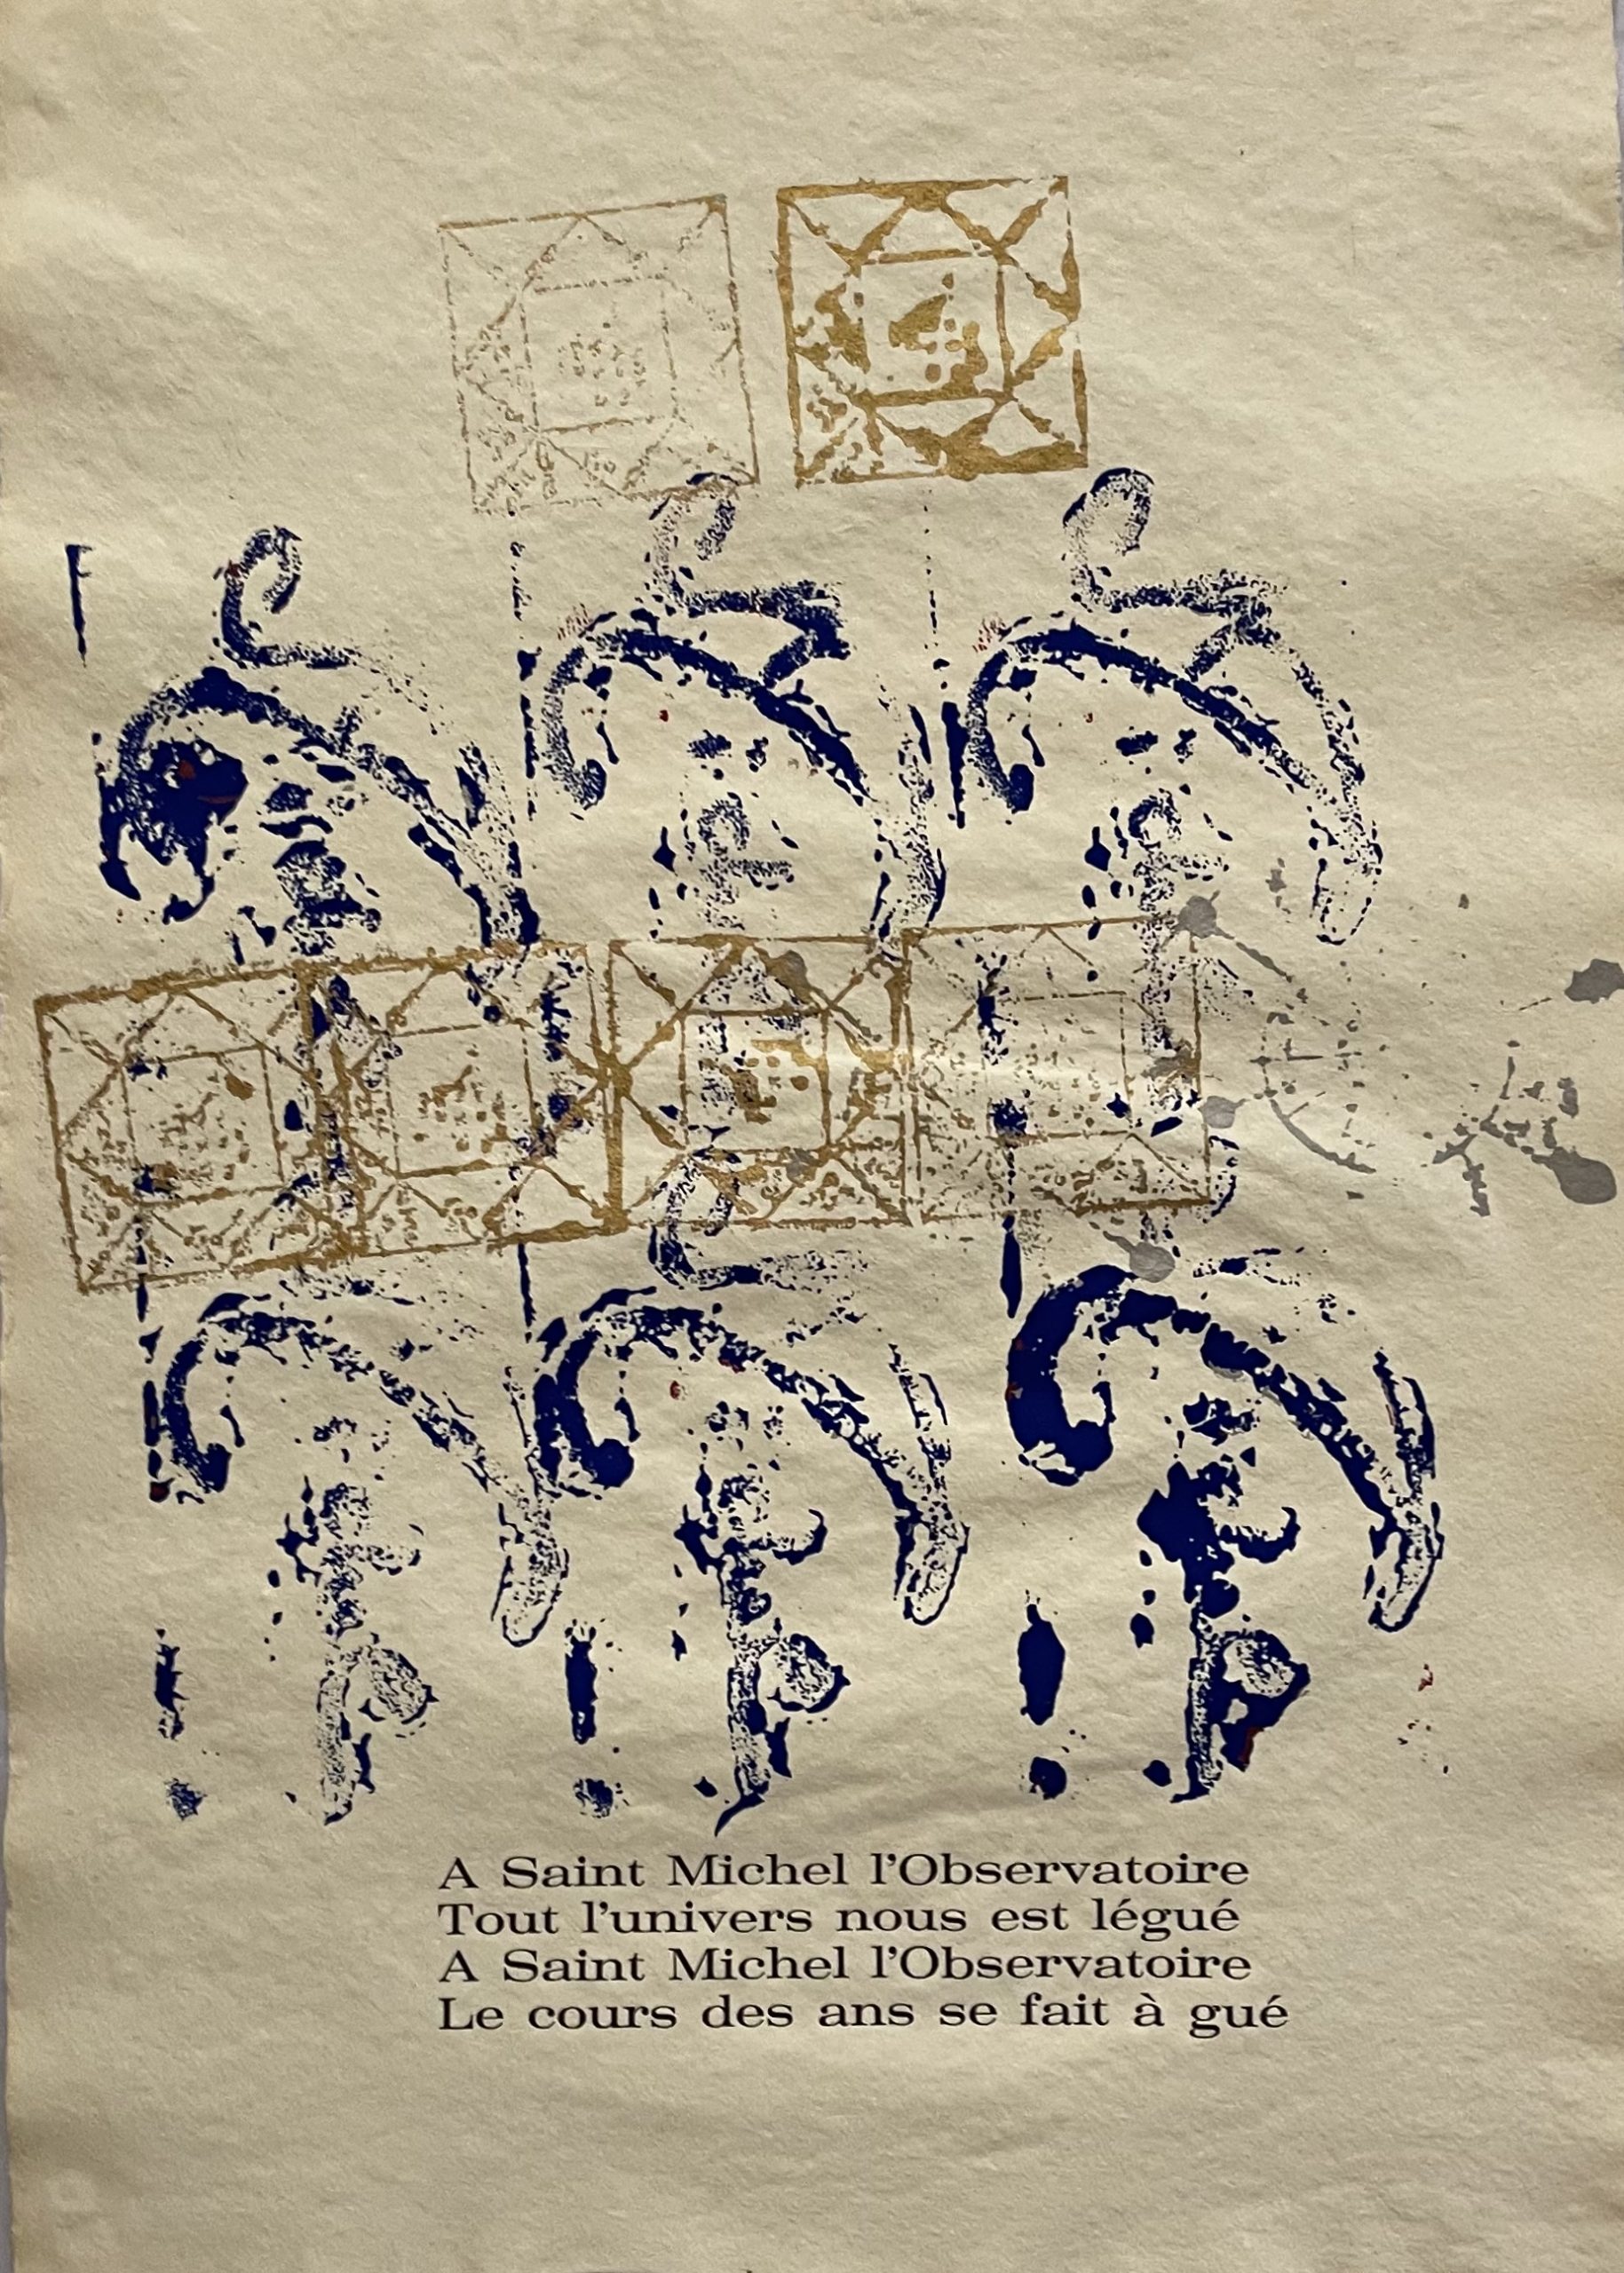 A Saint Michel l'Observatoire
Tout l'univers nous est légué
A Saint Michel l'Observatoire
Le cours des ans se fait à gué